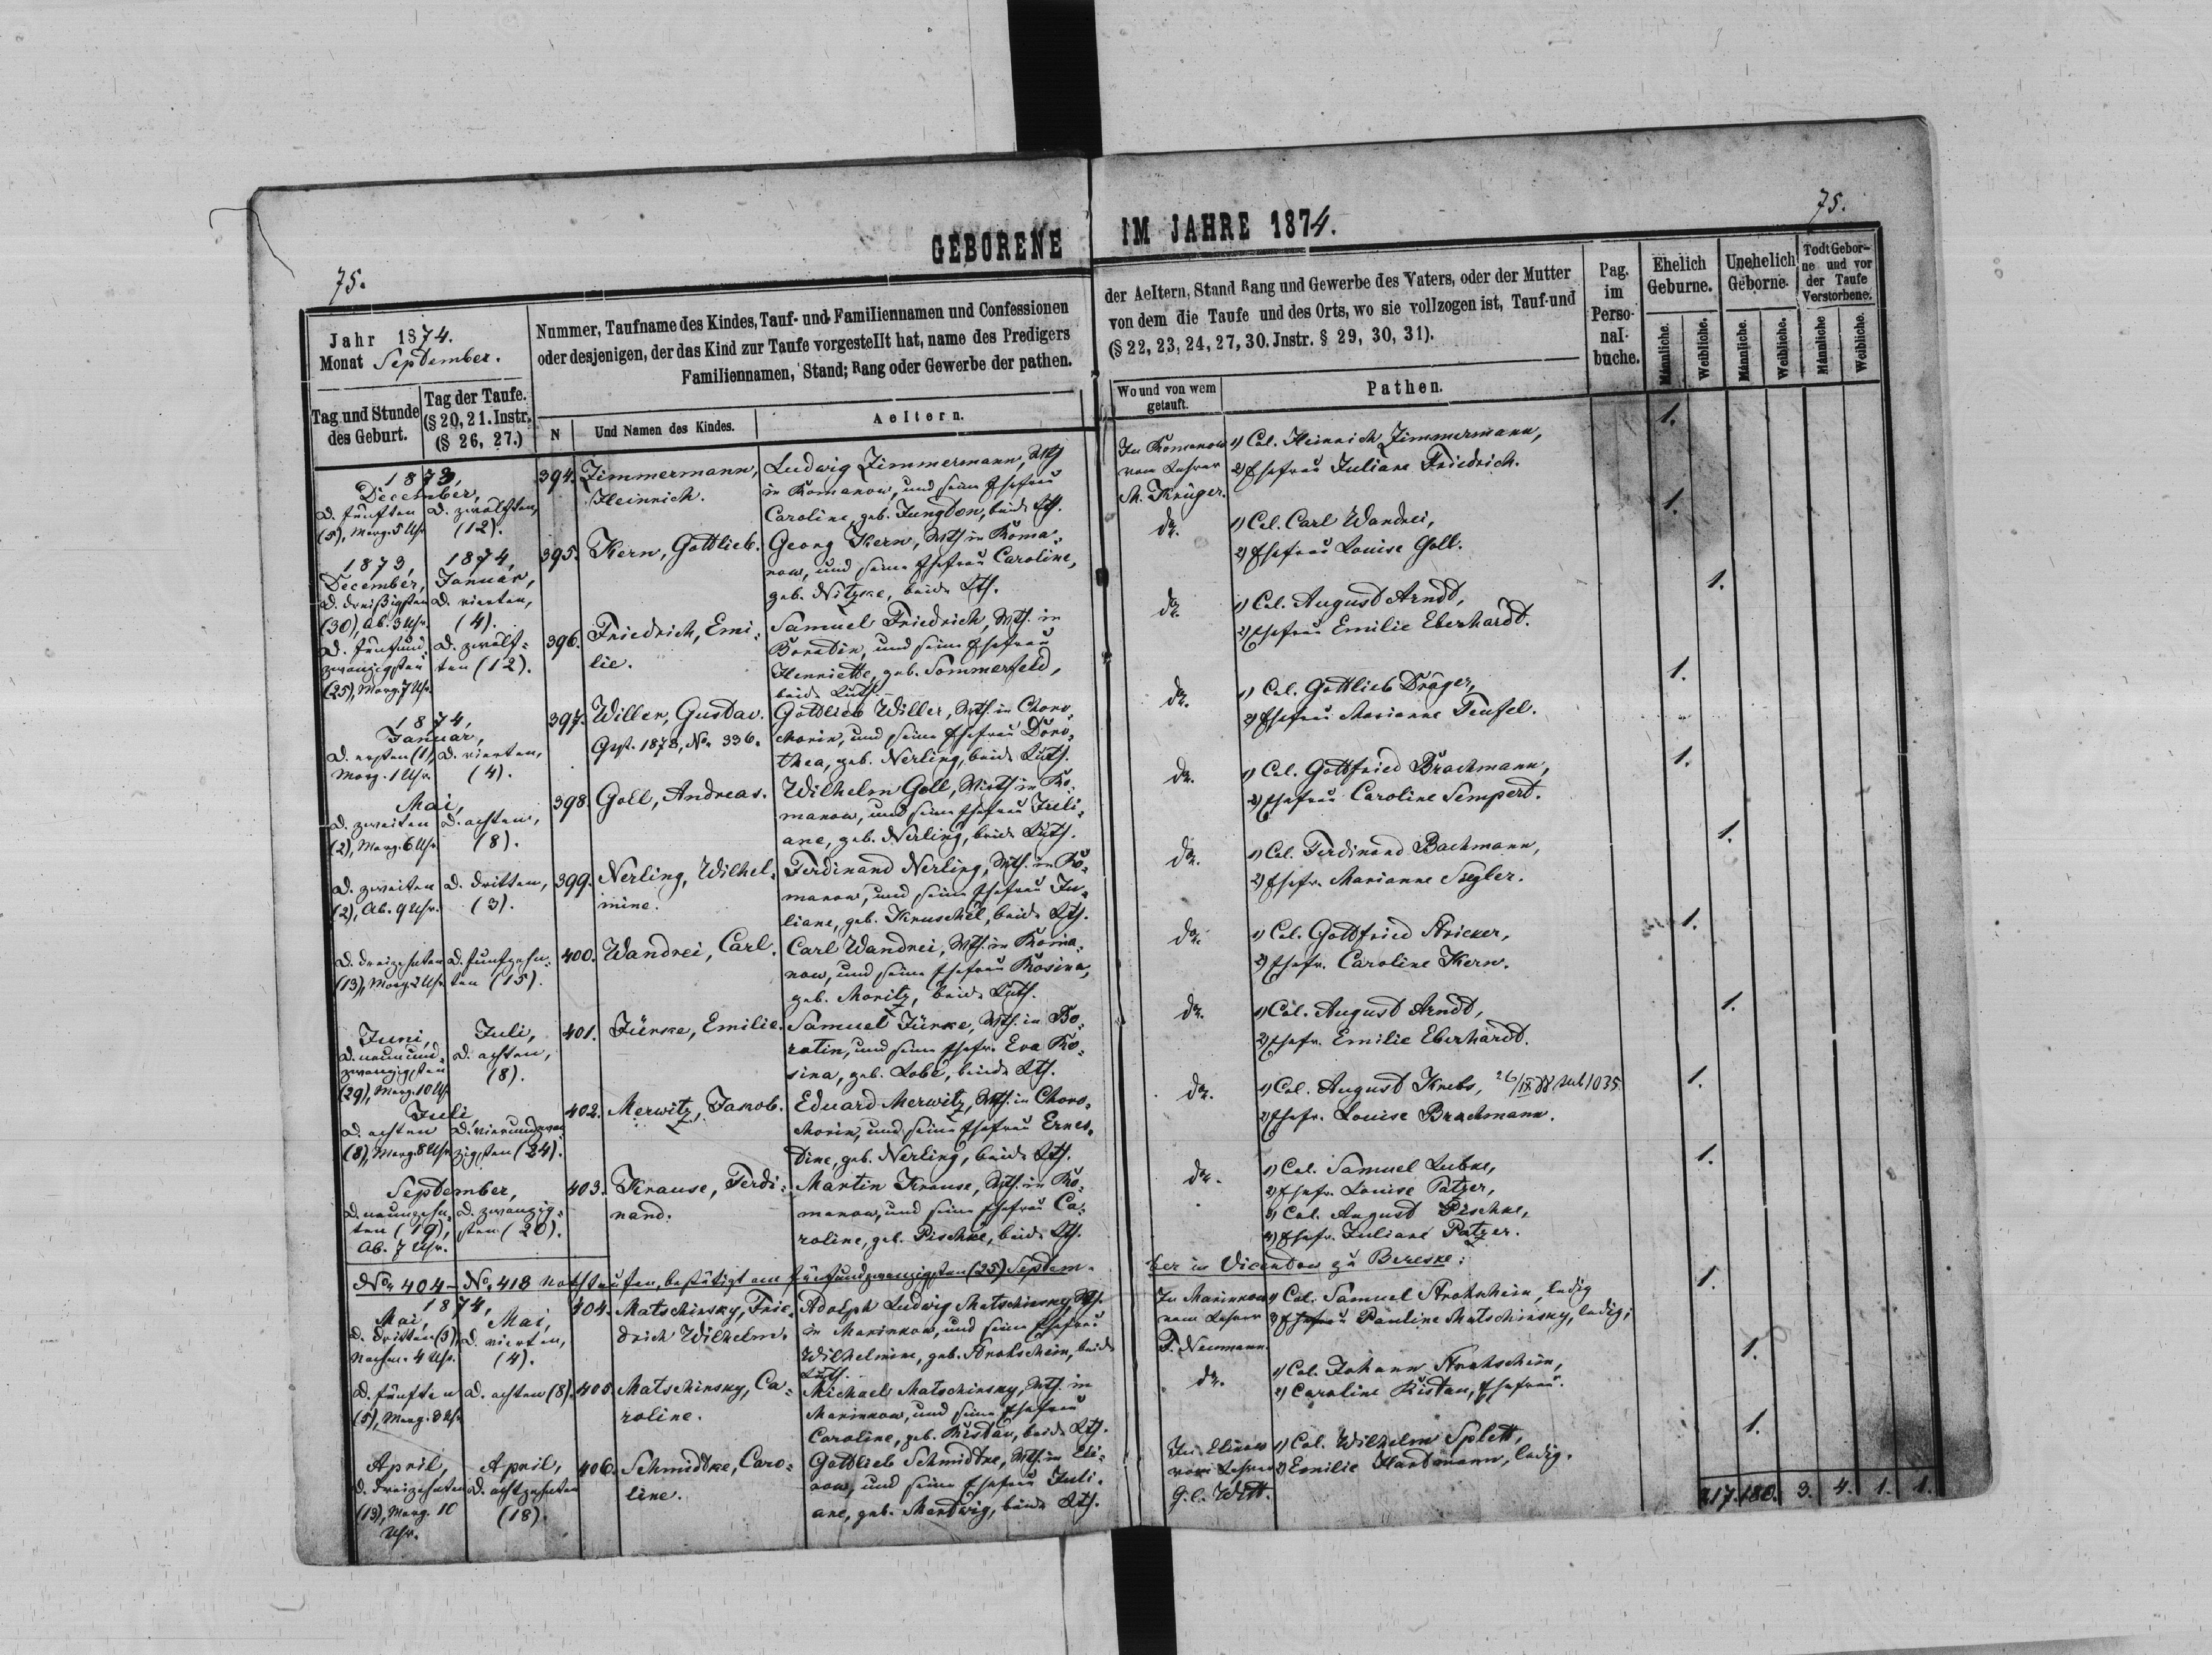 75.
GEBORENE IM JAHRE 1874.
75.
Jahr 1874.
Monat September.
Tag und Stunde des Geburt.
Tag der Taufe. (§ 20, 21. Instr. (§ 26, 27.)
Nummer, Taufname des Kindes, Tauf- und Familiennamen und Confessionen
oder desjenigen, der das Kind zur Taufe vorgestellt hat, name des Predigers
Familiennamen, Stand; Rang oder Gewerbe der pathen.
N
Und Namen des Kindes.
Aeltern.
der Aeltern, Stand Rang und Gewerbe des Vaters, oder der Mutter
von dem die Taufe und des Orts, wo sie vollzogen ist, Tauf-und
(§ 22, 23, 24, 27, 30. Jnstr. § 29, 30, 31).
Wo und von wem getauft.
Pathen.
Pag. im Perso- nal- buche.
Ehelich Geburne.
Unehelich Geborne.
Todt Gebor- ne und vor der Taufe Verstorbene.
Männliche. Weibliche. Männliche. Weibliche. Männliche Weibliche.
1873,
December,
d. fünften d. zwölften,
(5), Morg. 5 Uhr (12).
394. Zimmermann,
Heinrich.
Ludwig Zimmermann, Wth
in Romanow, und seine Ehefrau
Caroline, geb. Jungton, beide Lth.
In Romanow
vom Lehrer
M. Krüger.
1) Col. Heinrich Zimmermann,
2) Ehefrau Juliane Friedrich.
1.
1873, 1874,
December, Januar,
d. dreißigsten d. vierten,
(30), Ab. 3 Uhr. (4).
395. Kern, Gottlieb.
Georg Kern, Wth in Roma-
now, und seine Ehefrau Caroline,
geb. Nitzke, beide Lth.
do.
1) Col. Carl Wandrei,
2) Ehefrau Louise Goll.
1.
d. fünfund d. zwölf-
zwanzigsten ten (12).
(25), Morg. 7 Uhr.
396. Friedrich, Emi-
lie.
Samuel Friedrich, Wth. in
Boratin, und seine Ehefrau
Henriette, geb. Sommerfeld,
beide Luth.
do.
1) Col. August Arndt,
2) Ehefrau Emilie Eberhardt.
1.
1874,
Januar,
d. ersten (1), d. vierten,
Morg. 1 Uhr. (4).
397. Willer, Gustav.
Gest. 1878, No. 336.
Gottlieb Willer, Wth. in Choro-
chorin, und seine Ehefrau Doro-
thea, geb. Nerling, beide Luth.
do.
1) Col. Gottlieb Dräger,
2) Ehefrau Marianne Teufel.
1.
Mai,
d. zweiten d. achten,
(2), Morg. 6 Uhr. (8).
398. Goll, Andreas.
Wilhelm Goll, Wirth in Ro-
manow, und seine Ehefrau Juli-
ane, geb. Nerling, beide Luth.
do.
1) Col. Gottfried Brachmann,
2) Ehefrau Caroline Sempert.
1.
d. zweiten d. dritten,
(2), Ab. 9 Uhr. (3).
399. Nerling, Wilhel-
mine.
Ferdinand Nerling, Wth. in Ro-
manow, und seine Ehefrau Ju-
liane, geb. Kruschel, beide Lth.
do.
1) Col. Ferdinand Bachmann,
2) Ehefr. Marianne Segler.
1.
d. dreizehnten d. funfzehn-
(13), Morg. 2 Uhr. ten (15).
400. Wandrei, Carl.
Carl Wandrei, Wth. in Roma-
now, und seine Ehefrau Rosina,
geb. Moritz, beide Luth.
do.
1) Col. Gottfried Stricker,
2) Ehefr. Caroline Kern.
1.
Juni, Juli,
d. neunund- d. achten,
zwanzigsten (8).
(29), Morg. 10 Uhr
401. Jürke, Emilie.
Samuel Jürke, Wth. in Bo-
ratin, und seine Ehefr. Eva Ro-
sina, geb. Lobe, beide Lth.
do.
1) Col. August Arndt,
2) Ehefr. Emilie Eberhardt.
1.
Juli,
d. achten d. vierundzwan
(8), Morg. 8 Uhr zigsten (24).
402. Merwitz, Jakob.
Eduard Merwitz, Wth. in Choro-
chorin, und seine Ehefrau Ernes-
tine, geb. Nerling, beide Lth.
do.
1) Col. August Krebs, 26/IX 88 sub 1035
2) Ehefr. Louise Brachmann.
1.
September,
d. neunzehn- d. zwanzig-
ten (19), sten (20).
Ab. 7 Uhr.
403. Krause, Ferdi-
nand.
Martin Krause, Wth. in Ro-
manow, und seine Ehefrau Ca-
roline, geb. Pischke, beide Lth.
do.
1) Col. Samuel Lubke,
2) Ehefr. Louise Patzer,
3) Col. August Pischke,
4) Ehefr. Juliane Patzer.
1.
No. 404 – No. 418 Nothtaufen, bestätigt am fünfundzwanzigsten (25) Septem-
ber in Vicentow zu Bereske:
1874,
Mai, Mai,
d. dritten (3), d. vierten,
Nachm. 4 Uhr. (4).
404. Matschinsky, Frie-
drich Wilhelm.
Adolph Ludwig Matschinsky, Wth.
in Marinkow, und seine Ehefrau
Wilhelmine, geb. Strohschein, beide
Luth.
In Marinkow
vom Lehrer
F. Neumann.
1) Col. Samuel Strohschein, ledig
2) Pauline Matschinsky, ledig;
1.
d. fünften d. achten (8).
(5), Morg. 8 Uhr
405. Matschinsky, Ca-
roline.
Michael Matschinsky, Wth. in
Marinkow, und seine Ehefrau
Caroline, geb. Ristau, beide Lth.
do.
1) Col. Johann Strohschein,
2) Caroline Ristau, Ehefrau.
1.
April, April,
d. dreizehnten d. achtzehnten
(13), Morg. 10 (18).
Uhr.
406. Schmidtke, Caro-
line.
Gottlieb Schmidtke, Wth. in Eli-
now, und seine Ehefrau Juli-
ane, geb. Mantwig, beide Lth.
In Elinow
vom Lehrer
G. C. Witt.
1) Col. Wilhelm Splett,
2) Emilie Hardmann, ledig.
1.
217. 180. 3. 4. 1. 1.